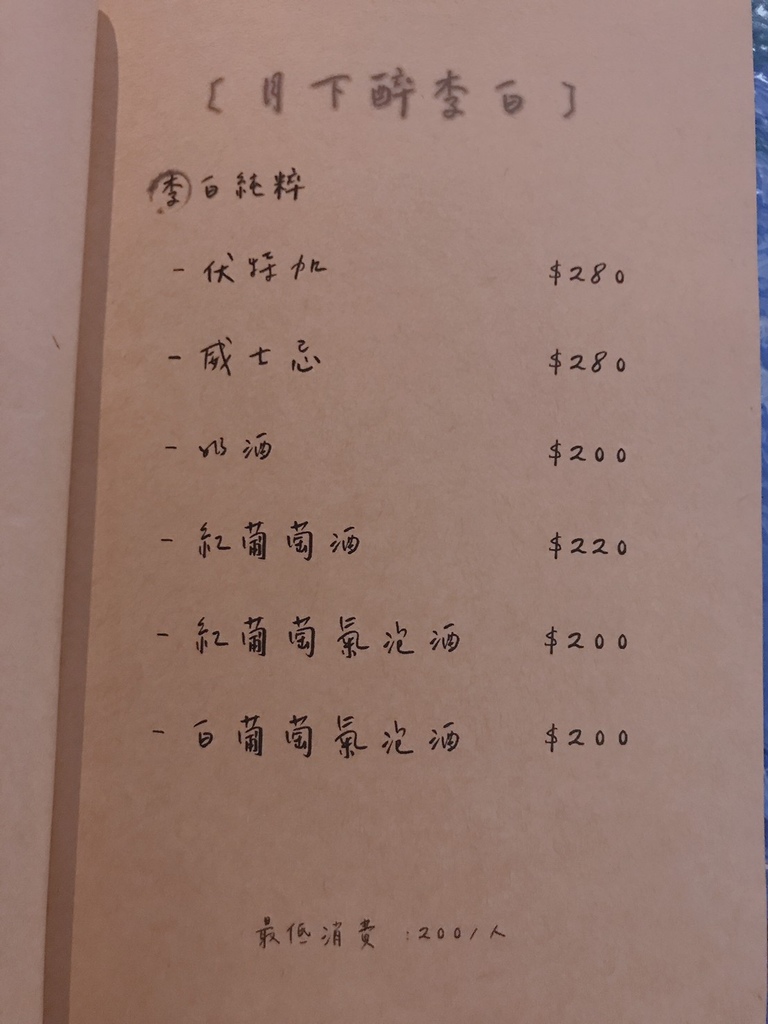 [月下醉李白]
李白純粹
- 伏特加 $280
- 威士忌 $280
- 奶酒 $200
- 紅葡萄酒 $220
- 紅葡萄氣泡酒 $200
- 白葡萄氣泡酒 $200
最低消費 : 200/人